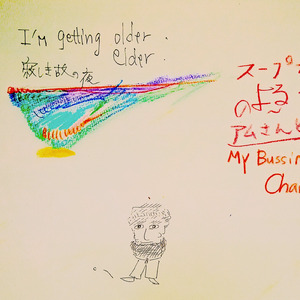 I'm getting older.
elder.
寂しき故の夜
スープ
のよる
アムさんと
My Bussin
Chan